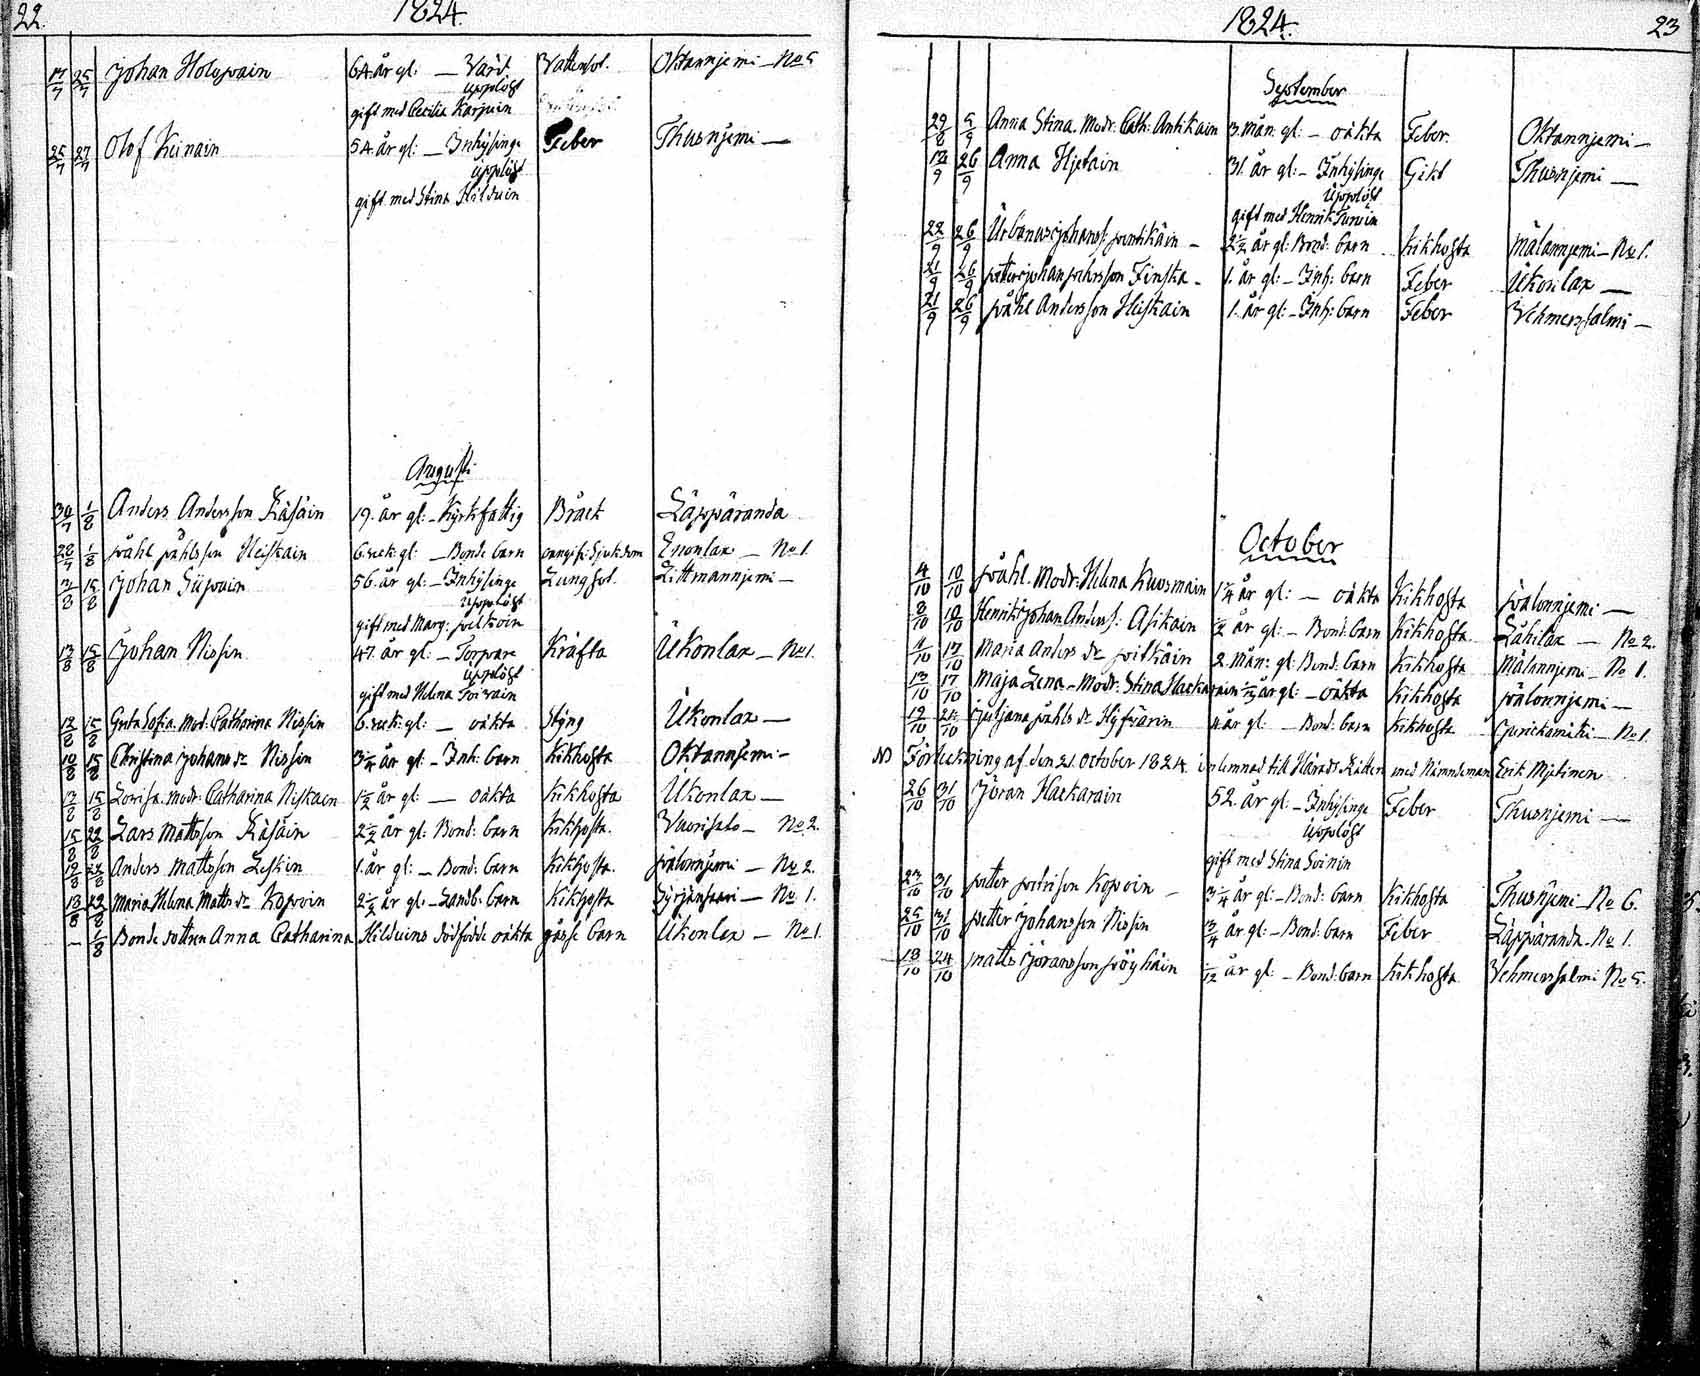 22.
1824.
17/7 25/7 Johan Holopain 64. år gl: — Värd Vattusot. Oktannjemi — No 5
Upplöst
gift med Cecilia Karpuin
25/7 27/7 Olof Keinain 54. år gl: — Inhÿsinge Feber Thusnjemi —
Upplöst
gift med Stina Hilduin
Augusti
30/7 1/8 Anders Andersson Räsäin 19. år gl: — Kÿrkfattig Bråck Läppäranda
28/7 1/8 påhl påhlsson Heiskain 6. veck: gl: — Bonde barn oangif: Sjukdom Enonlax — No 1.
15/8 Johan 56. år gl: — Inhÿsinge Lungsot. Littmannjemi —
Upplöst
gift med Marg:
13/8 15/8 Johan Nissin 47. år gl: — Torpare Kräfta Ükonlax — No 1.
Upplöst
gift med Helena Toivain
12/8 15/8 Greta Sofia. Mod: Catharina Nissin 6. veck: gl: — oäkta Stÿng Ükonlax —
10/8 15/8 Christina Johans dr Nissin 3/4 år gl: — Inh: barn Kikhosta Oktannjemi —
13/8 15/8 Lovisa. Modr: Catharina Niskain 1 1/2 år gl: — oäkta Kikhosta Ukonlax —
15/8 22/8 Lars Mattsson Räsäin 2 1/2 år gl: Bond: barn Kikhosta. Vuorisalo — No 2.
19/8 22/8 Anders Mattsson Leskin 1. år gl: — Bond: barn Kikhosta. pälonnjemi — No 2.
18/8 22/8 Maria Helena Matts dr Kopoin 2 1/2 år gl: — Landb: barn Kikhosta Sÿrjänsaari — No 1.
— 1/8 Bonde dottren Anna Catharina Hilduins dödfödde oäkta gåsse barn Ükonlax — No 1.
1824.
23
September
29/8 5/9 Anna Stina. Modr: Cath: Antikain 3. mån: gl: — oäkta Feber. Oktannjemi —
12/9 26/9 Anna Hÿtäin 31. år gl: — Inhÿsinge Gikt Thusnjemi —
Upplöst
gift med Henrik
22/9 26/9 Urbanus Johanss: pentikäin — 2 1/2 år gl: Bond: barn Kikhosta Mälonnjemi — No 1.
21/9 26/9 petter Johan pehrsson Finska — 1. år gl: — Inh: barn Feber Ükonlax —
21/9 26/9 påhl Andersson Heiskain 1. år gl: — Inh: barn Feber Vehmerssalmi —
October
4/10 10/10 påhl. Modr: Helena Kuosmain 1 1/4 år gl: — oäkta Kikhosta pälonnjemi —
8/10 10/10 Henrik Johan Anders S: Asikain 1/2 år gl: — Bond: barn Kikhosta Lähilax — No 2.
11/10 17/10 Maria Anders dr pitkäin 2. Mån: gl: Bond: barn Kikhosta Mälonnjemi — No 1.
13/10 17/10 Maja Lena — Modr: Stina Hackarain år gl: — oäkta Kikhosta pälonnjemi —
19/10 Juljana påhls dr Hÿfvärin 4 år gl: — Bond: barn Kikhosta Jurickamäki — No 1.
NB Förteckning af den 21. October 1824. inlemnad till Härads Rätten med Nämndeman Erik Mÿtinen
26/10 31/10 Jöran Hackarain 52. år gl: — Inhÿsinge Feber Thusnjemi —
Upplöst
gift med Stina Soinin
23/10 31/10 petter petrsson Kopoin — 3 1/4 år gl: — Bond: barn Kikhosta Thusnjemi — No 6.
25/10 31/10 petter Johansson Nissin 3/4 år gl: — Bond: barn Feber Läppäranda — No 1.
18/10 24/10 Matts Jöransson pöÿhäin 1/12 år gl: — Bond: barn Kikhosta Vehmerssalmi No 5.